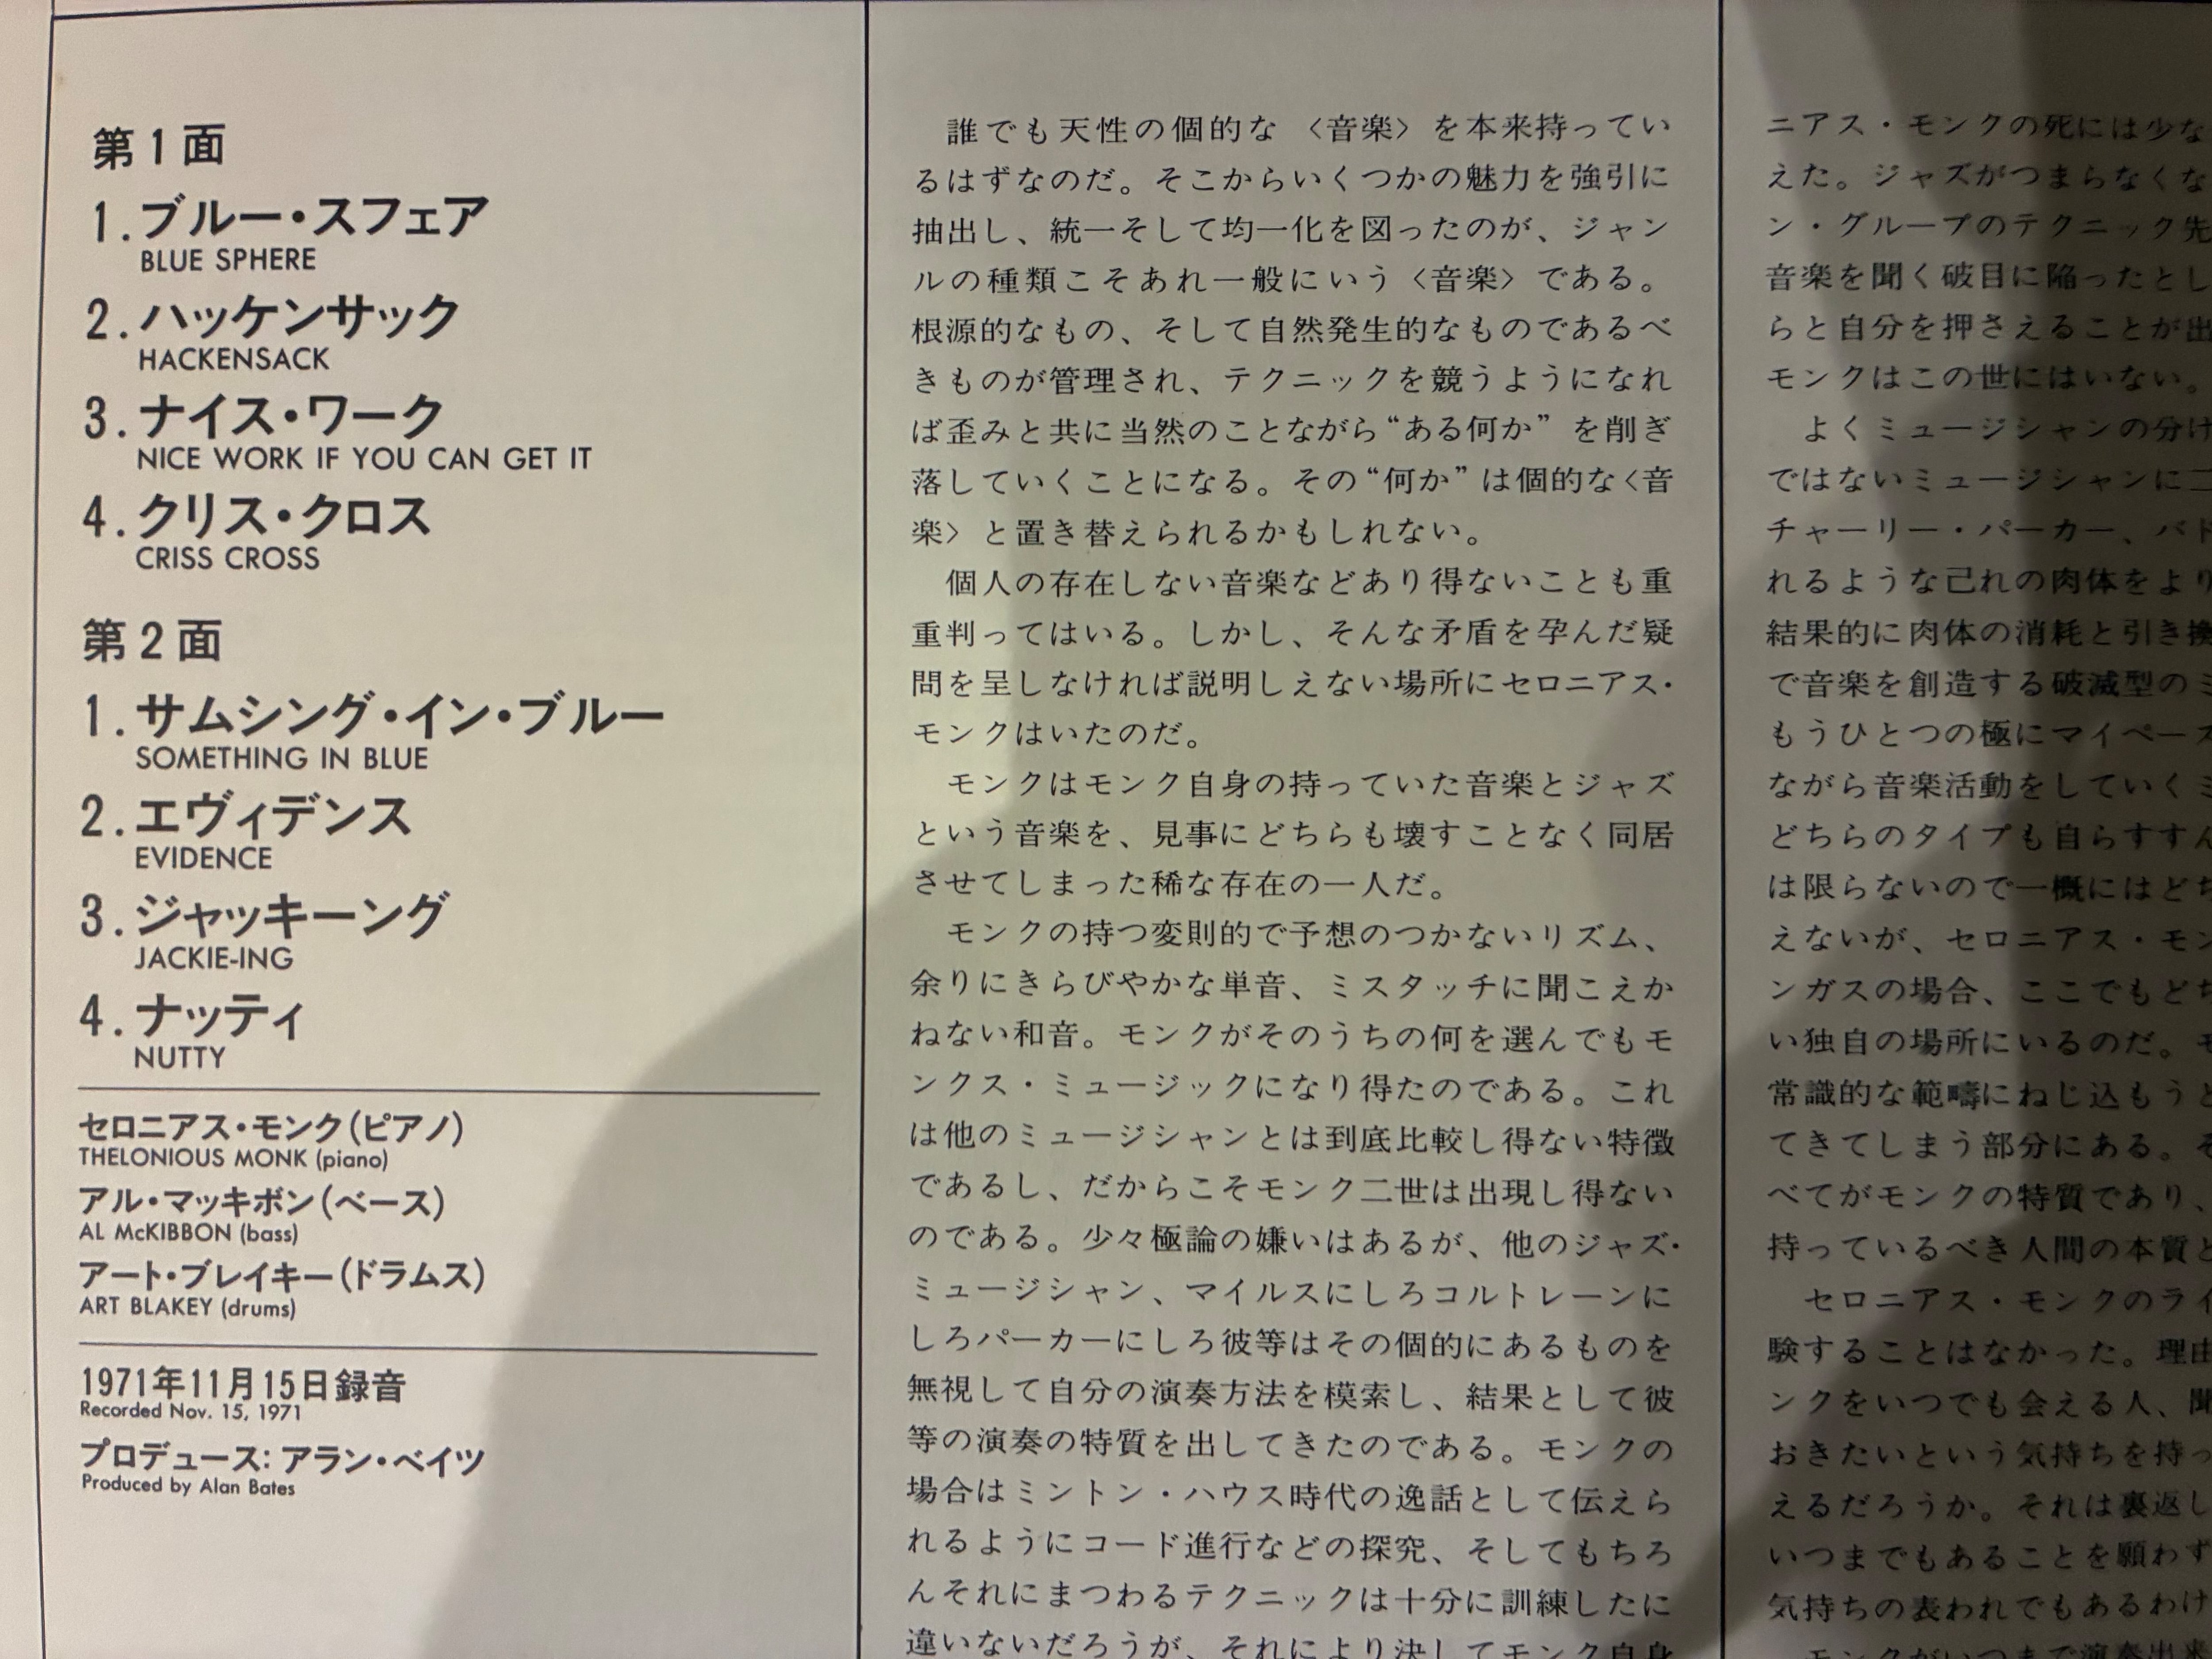 第1面
1.ブルー・スフェア
BLUE SPHERE
2.ハッケンサック
HACKENSACK
3.ナイス・ワーク
NICE WORK IF YOU CAN GET IT
4.クリス・クロス
CRISS CROSS
第2面
1.サムシング・イン・ブルー
SOMETHING IN BLUE
2.エヴィデンス
EVIDENCE
3.ジャッキーング
JACKIE-ING
4.ナッティ
NUTTY
セロニアス・モンク(ピアノ)
THELONIOUS MONK (piano)
アル・マッキボン(ベース)
AL McKIBBON (bass)
アート・ブレイキー(ドラムス)
ART BLAKEY (drums)
1971年11月15日録音
Recorded Nov. 15, 1971
プロデュース: アラン・ベイツ
Produced by Alan Bates
誰でも天性の個的な〈音楽〉を本来持ってい
るはずなのだ。そこからいくつかの魅力を強引に
抽出し、統一そして均一化を図ったのが、ジャン
ルの種類こそあれ一般にいう〈音楽〉である。
根源的なもの、そして自然発生的なものであるべ
きものが管理され、テクニックを競うようになれ
ば歪みと共に当然のことながら“ある何か”を削ぎ
落していくことになる。その“何か”は個的な〈音
楽〉と置き替えられるかもしれない。
個人の存在しない音楽などあり得ないことも重
重判ってはいる。しかし、そんな矛盾を孕んだ疑
問を呈しなければ説明しえない場所にセロニアス・
モンクはいたのだ。
モンクはモンク自身の持っていた音楽とジャズ
という音楽を、見事にどちらも壊すことなく同居
させてしまった稀な存在の一人だ。
モンクの持つ変則的で予想のつかないリズム、
余りにきらびやかな単音、ミスタッチに聞こえか
ねない和音。モンクがそのうちの何を選んでもモ
ンクス・ミュージックになり得たのである。これ
は他のミュージシャンとは到底比較し得ない特徴
であるし、だからこそモンク二世は出現し得ない
のである。少々極論の嫌いはあるが、他のジャズ・
ミュージシャン、マイルスにしろコルトレーンに
しろパーカーにしろ彼等はその個的にあるものを
無視して自分の演奏方法を模索し、結果として彼
等の演奏の特質を出してきたのである。モンクの
場合はミントン・ハウス時代の逸話として伝えら
れるようにコード進行などの探究、そしてもちろ
んそれにまつわるテクニックは十分に訓練したに
違いないだろうが、それにより決してモンク自身
ニアス・モンクの死には少な
えた。ジャズがつまらなくな
ン・グループのテクニック先
音楽を聞く破目に陥ったとし
らと自分を押さえることが出
モンクはこの世にはいない。
よくミュージシャンの分け
ではないミュージシャンに二
チャーリー・パーカー、バド
れるような己れの肉体をより
結果的に肉体の消耗と引き換
で音楽を創造する破滅型のミ
もうひとつの極にマイペース
ながら音楽活動をしていくミ
どちらのタイプも自らすすん
は限らないので一概にはどち
えないが、セロニアス・モン
ンガスの場合、ここでもどち
い独自の場所にいるのだ。モ
常識的な範疇にねじ込もうと
てきてしまう部分にある。そ
べてがモンクの特質であり、
持っているべき人間の本質と
セロニアス・モンクのライ
験することはなかった。理由
ンクをいつでも会える人、聞
おきたいという気持ちを持っ
えるだろうか。それは裏返し
いつまでもあることを願わず
気持ちの表われでもあるわけ